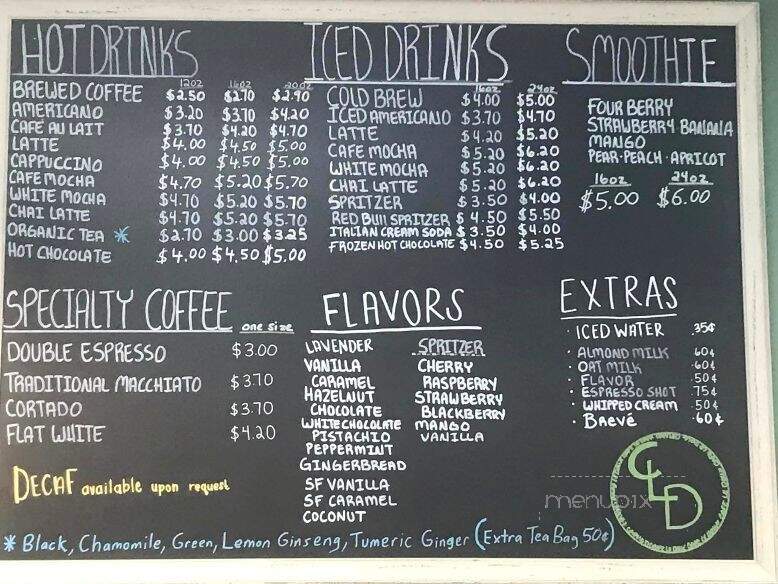 HOT DRINKS
12oz 16oz 20oz
BREWED COFFEE $2.50 $2.70 $2.90
AMERICANO $3.20 $3.70 $4.20
CAFÉ AU LAIT $3.70 $4.20 $4.70
LATTE $4.00 $4.50 $5.00
CAPPUCCINO $4.00 $4.50 $5.00
CAFE MOCHA $4.70 $5.20 $5.70
WHITE MOCHA $4.70 $5.20 $5.70
CHAI LATTE $4.70 $5.20 $5.70
ORGANIC TEA * $2.70 $3.00 $3.25
HOT CHOCOLATE $4.00 $4.50 $5.00
ICED DRINKS
16oz 24oz
COLD BREW $4.00 $5.00
ICED AMERICANO $3.70 $4.70
LATTE $4.20 $5.20
CAFE MOCHA $5.20 $6.20
WHITE MOCHA $5.20 $6.20
CHAI LATTE $5.20 $6.20
SPRITZER $3.50 $4.00
RED BULL SPRITZER $4.50 $5.50
ITALIAN CREAM SODA $3.50 $4.00
FROZEN HOT CHOCOLATE $4.50 $5.25
SMOOTHIE
FOUR BERRY
STRAWBERRY BANANA
MANGO
PEAR·PEACH·APRICOT
16oz 24oz
$5.00 $6.00
SPECIALTY COFFEE one size
DOUBLE ESPRESSO $3.00
TRADITIONAL MACCHIATO $3.70
CORTADO $3.70
FLAT WHITE $4.20
DECAF available upon request
FLAVORS
LAVENDER
VANILLA
CARAMEL
HAZELNUT
CHOCOLATE
WHITE CHOCOLATE
PISTACHIO
PEPPERMINT
GINGERBREAD
SF VANILLA
SF CARAMEL
COCONUT
SPRITZER
CHERRY
RASPBERRY
STRAWBERRY
BLACKBERRY
MANGO
VANILLA
EXTRAS
· ICED WATER .35¢
· ALMOND MILK .60¢
· OAT MILK .60¢
· FLAVOR .50¢
· ESPRESSO SHOT .75¢
· WHIPPED CREAM .50¢
· Brevé .60¢
CLD
menupix
* Black, Chamomile, Green, Lemon Ginseng, Tumeric Ginger (Extra Tea Bag 50¢)